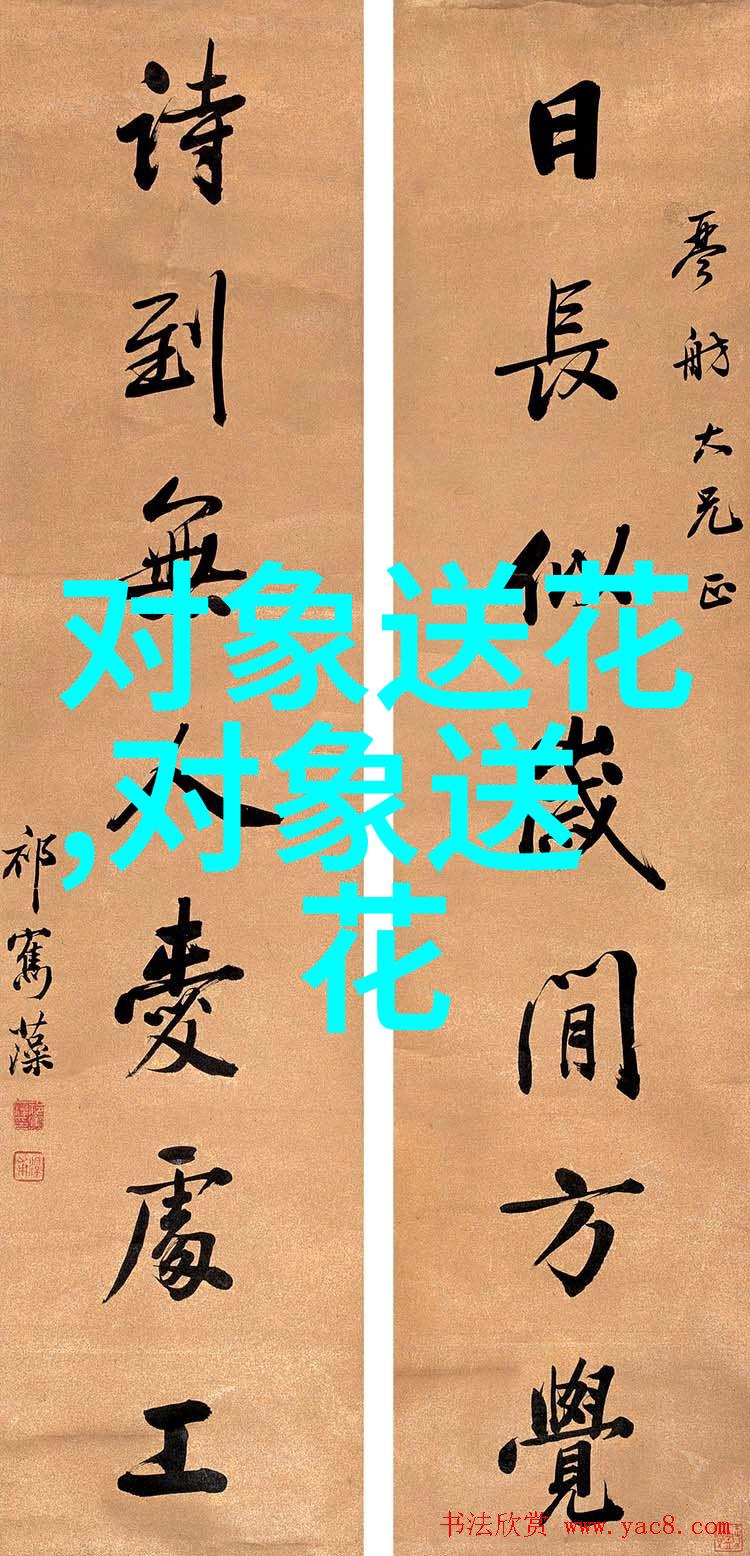 日長似歲閒方覺
琴舫大兄正
詩到無人愛處工
祁寯藻
对象送花
,对象送
花
书法欣赏 www.yac8.com